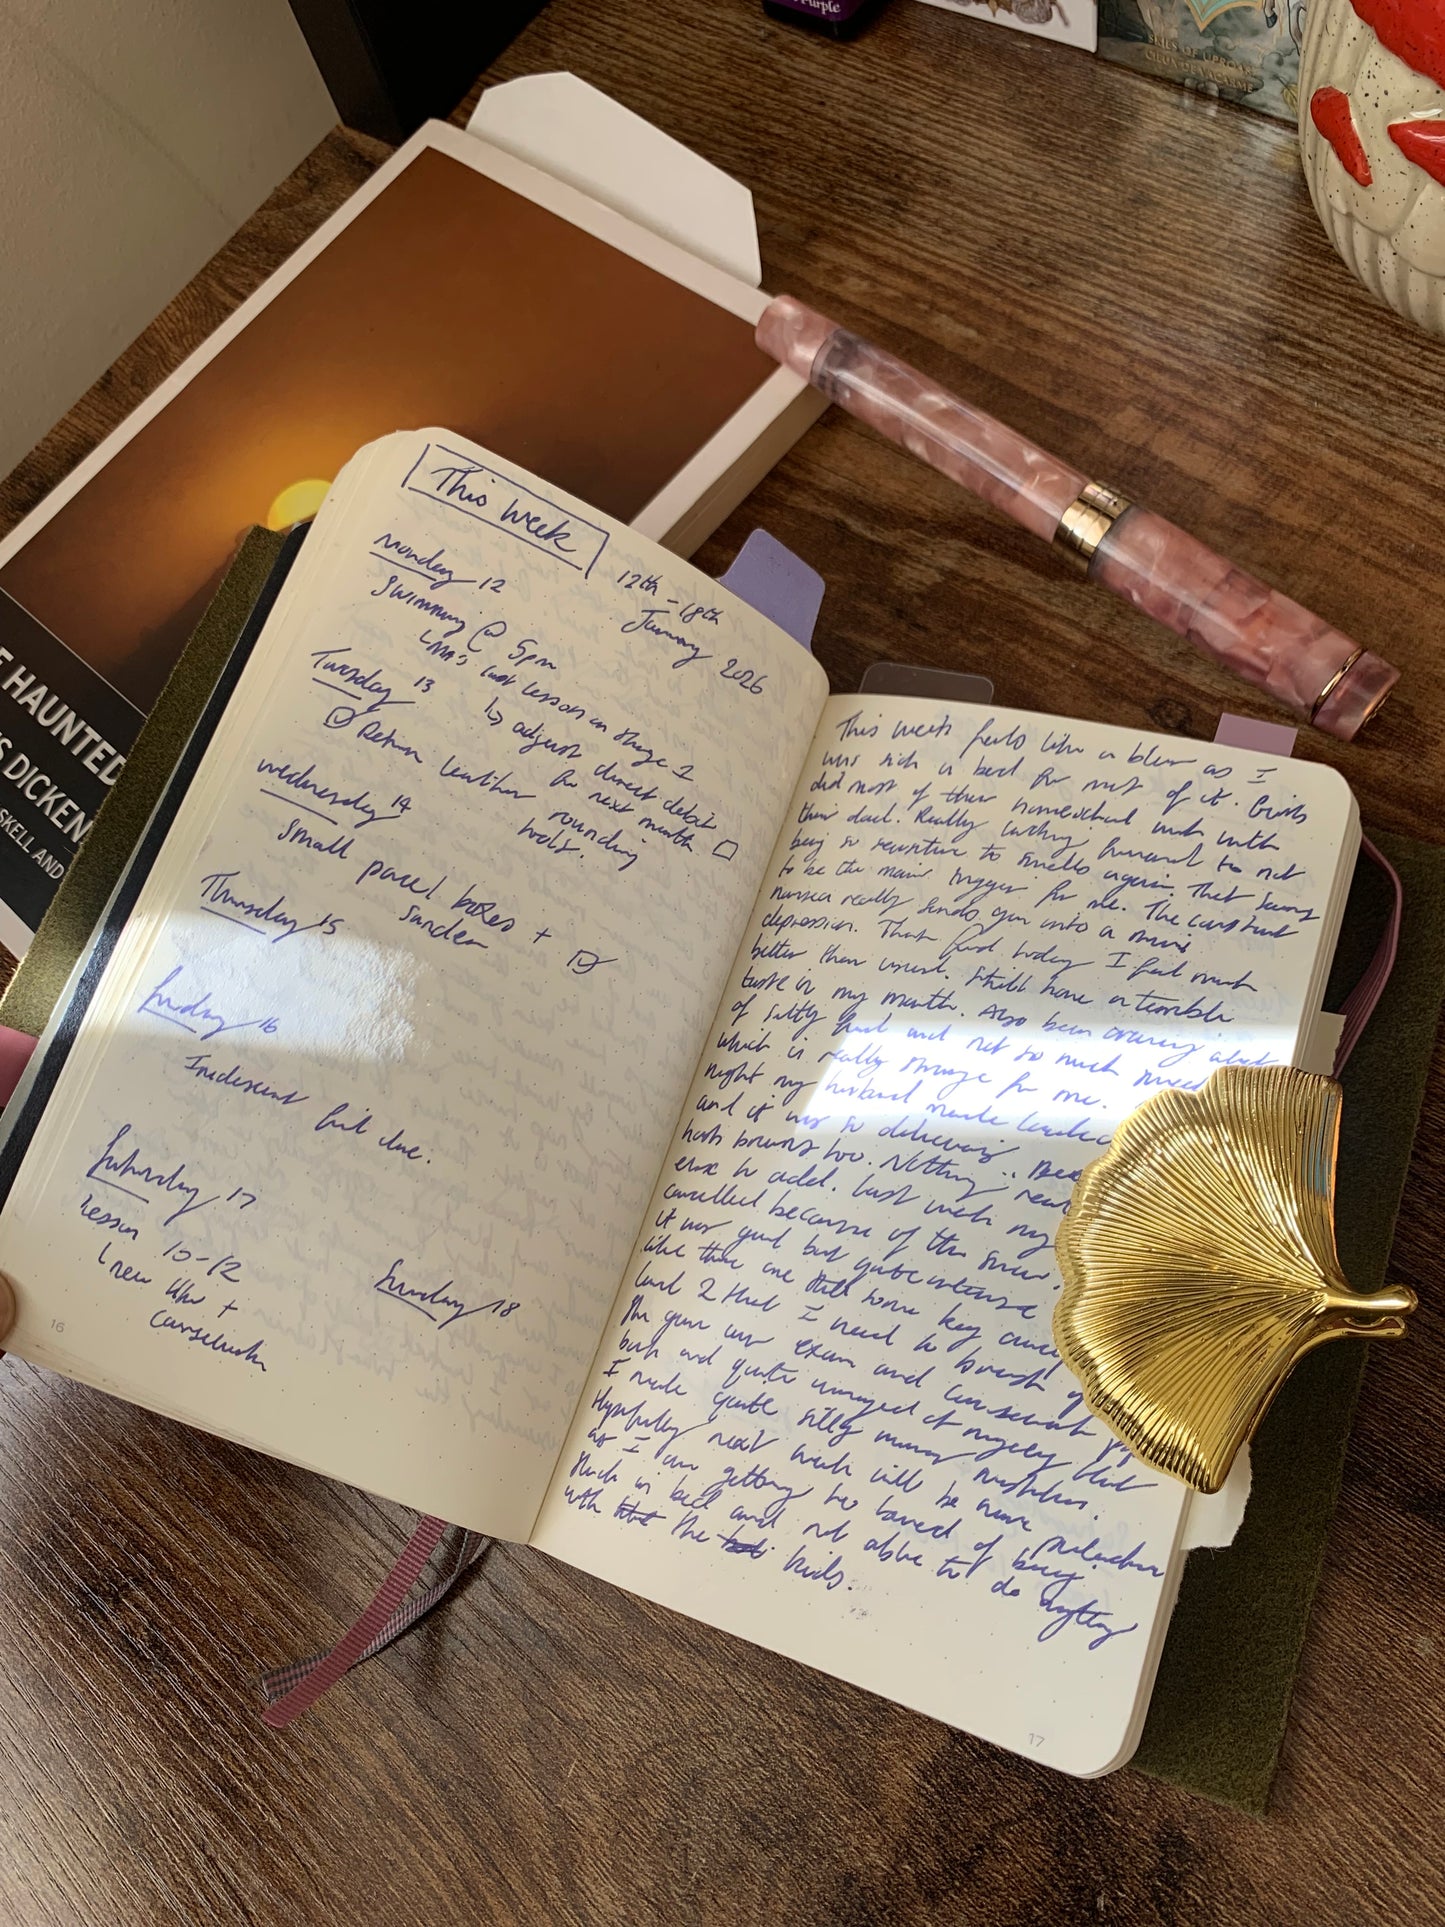 Purple
SKIES OF UPROAR
CIEUX DE VACARME
HAUNTED
DICKEN
SKELL AND
This Week
12th - 18th
January 2026
Monday 12
Swimming @ 5pm
last lesson on stage 2
↳ adjust direct debit
for next month
Tuesday 13
Return leather rounding
tools.
Wednesday 14
Small parcel boxes +
Sander
Thursday 15
Friday 16
Iridescent bit due.
Saturday 17
Lesson
10-12
+
Sunday 18
16
This week feels like a blur as I
was sick in bed for most of it. Girls
did most of their homeschool work with
their dad. Really looking forward to not
being so sensitive to smells again, that seems
to be the main trigger for me. The constant
nausea really sends you into a mini
depression. That said today I feel much
better than usual. Still have a terrible
taste in my mouth. Also been craving a lot
of salty food and not so much sweet
which is really strange for me.
night my husband made
and it was so delicious
hash browns too. Nothing
else to add. Last week my
cancelled because of the snow.
it was good but quite intense
like there are still some key
level 2 that I need to brush
exam and
both and quite annoyed at myself that
I made quite silly mistakes.
Hopefully next week will be more productive
as I am getting so bored of being
stuck in bed and not able to do anything
with the kids.
17